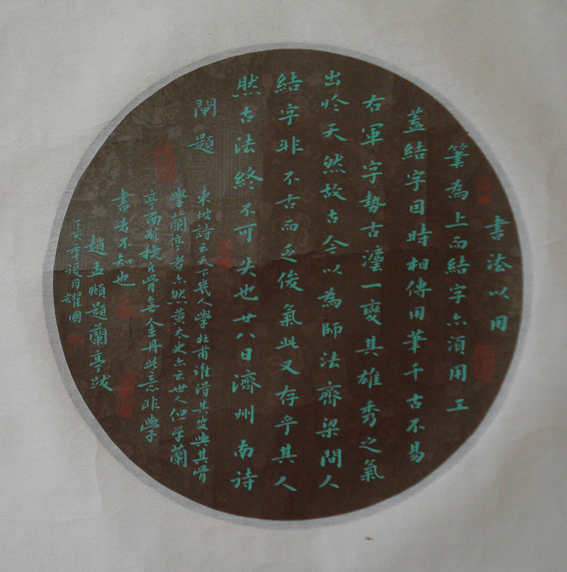 書法以用
筆為上而結字亦須用工
蓋結字因時相傳用筆千古不易
右軍字勢古法一變其雄秀之氣
出於天然故古今以為師法齊梁間人
結字非不古而乏俊氣此又存乎其人
然古法終不可失也廿八日濟州南詩
閘題
東坡詩云天下幾人學杜甫誰得其皮與其骨
學蘭亭者亦然黃太史亦云世人但學蘭
亭面欲換凡骨無金丹此意非學
書者不知也
趙孟頫題蘭亭跋
年 月耀國